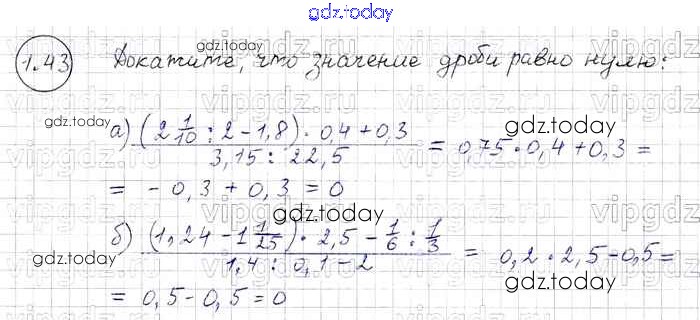 gdz.today
1.43 Докажите, что значение дроби равно нулю:
gdz.today
gdz.today
а) (2 1/10 : 2 - 1,8) · 0,4 + 0,3 / 3,15 : 22,5 = 0,75 · 0,4 + 0,3 =
gdz.today
= - 0,3 + 0,3 = 0
gdz.today
б) (1,24 - 1 1/25) · 2,5 - 1/6 : 1/3 / 1,4 : 0,1 - 2 = 0,2 · 2,5 - 0,5 =
gdz.today
gdz.today
= 0,5 - 0,5 = 0
gdz.today